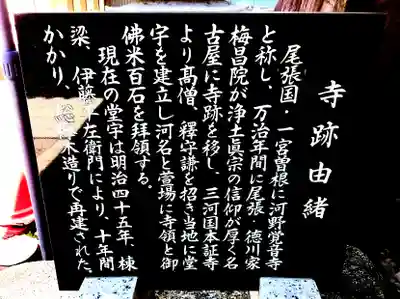 寺跡由緒
尾張国・一宮曽根に河野覚音寺
と称し、万治年間に尾張 徳川家
梅昌院が浄土真宗の信仰が厚く名
古屋に寺跡を移し、三河国本証寺
より髙僧、釋守謙を招き当地に堂
宇を建立し河名と萱場に寺領と御
佛米百石を拝領する。
現在の堂宇は明治四十五年、棟
梁、伊藤 左衛門により、十年間
かかり、総 木造りで再建された。